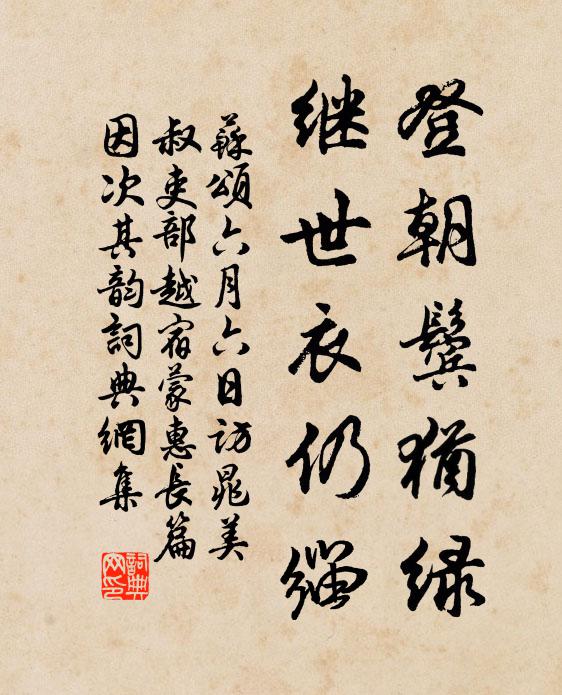 登朝鬓犹绿
继世衣仍缁
蘇頌六月六日访晁美
叔吏部越宿蒙惠長篇
因次其韵詞典網集
詞典网印